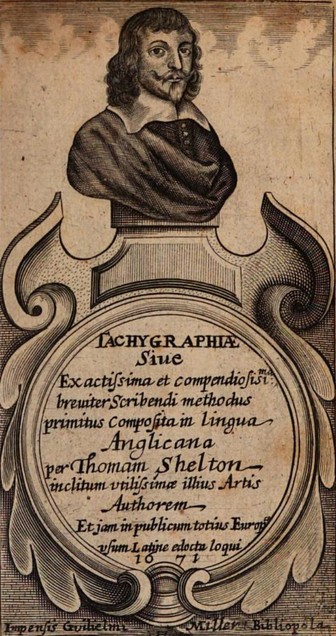 TACHYGRAPHIÆ
Siue
Exactissima et compendiosisi:ma
breuiter Scribendi methodus
primitus Composita in lingua
Anglicana
per Thomam Shelton
inclitum utilissimæ illius Artis
Authorem
Et jam in publicum totius Europæ
vsum Latine edocta loqui
1671
Impensis Guilielmi Miller Bibliopola